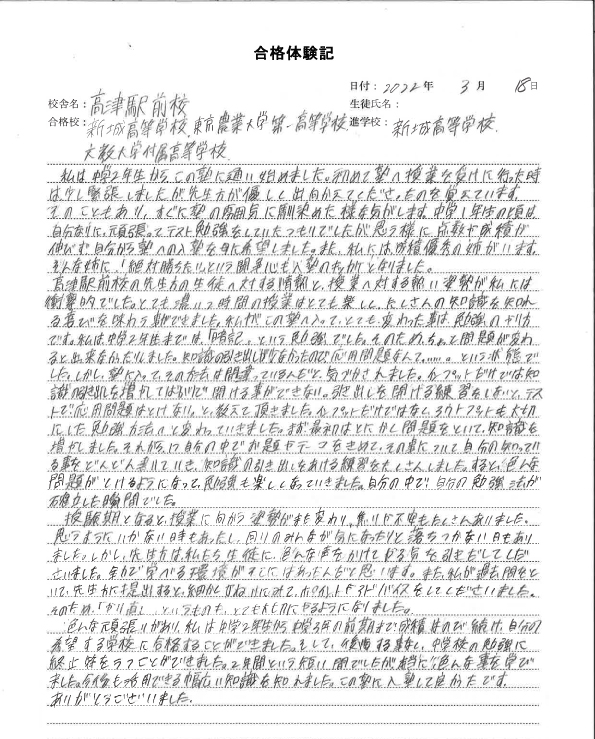 合格体験記
日付：2022年 3月 18日
校舎名：高津駅前校 生徒氏名：
合格校：新城高等学校、東京農業大学第一高等学校 進学校：新城高等学校
大教大学付属高等学校
私は中学2年生からこの塾に通い始めました。初めて塾へ授業を受けに行った時
は少し緊張しましたが先生方が優しく出向かえてくださったのを覚えています。
そのこともあり、すぐに塾の雰囲気に馴染めた様な気がします。中学1年生の頃は
自分なりに、頑張ってテスト勉強をしていたつもりでしたが思う様に点数や成績が
伸びず自分から塾への入塾を母に希望しました。また、私には成績優秀の姉がいます。
そんな姉に、「絶対勝ちたい」という闘争心も入塾のきっかけとなりました。
高津駅前校の先生方の生徒へ対する情熱と、授業へ対する熱い姿勢が私には
衝撃的でした。とても濃いつ時間の授業はとても楽しく、たくさんの知識を知れ
る喜びを味わう事ができました。私がこの塾へ入って、とても、変わった事は、勉強のやり方
です。私は中学2年生までは、「暗記」という勉強でした。そのため、ちょっと問題が変わ
ると出来なかったりしました。知識の引き出しが少なかったので応用問題なんて……。という状態で
した。しかし、塾に入って、その方法は間違っているんだと、気づかされました。インプットだけでは知
識の引き出しを増やしてばかりで開ける事ができない。引き出しを開ける練習をしないと、テス
トで応用問題はとけない。と、教えて頂きました。インプットだけではなく、アウトプットも大切
にした勉強方法へと変わっていきました。まず最初はとにかく問題をといて、知識を
増やしました。それから、自分の中でお題やテーマをきめて、その事について自分の知ってい
る事をどんどん書いていき、知識の引き出しをあける練習をたくさんしました。すると、色んな
問題がとけるようになって、勉強も楽しくなっていきました。自分の中で、自分の勉強法が
確立した瞬間でした。
受験期となると、授業に向かう姿勢がまた変わり、焦りや不安もたくさんありました。
思うようにいかない日もあったし、周りのみんなが気になったりと落ちつかない日もあり
ました。しかし、先生方は私たち生徒に、色んな声をかけてやる気を引きだしてくだ
さいました。全力で学べる環境がそこにはあったんだと思います。また、私が過去問をと
いて、先生方に提出すると、細かくていねいにみて、アドバイスをしてくださいました。
そのため、「やり直し」というものも、とても大切にやるようになりました。
色んな頑張りがあり、私は中学2年生から中学3年の前期まで成績はのび続け、自分の
希望する学校に合格することができました。そして、後悔する事なく、中学校の勉強に
終止符をうつことができました。2年間という短い間でしたが本当に色んな事を学び
ました。今後も活用できる幅広い知識を知れました。この塾に入塾して良かったです。
ありがとうございました。